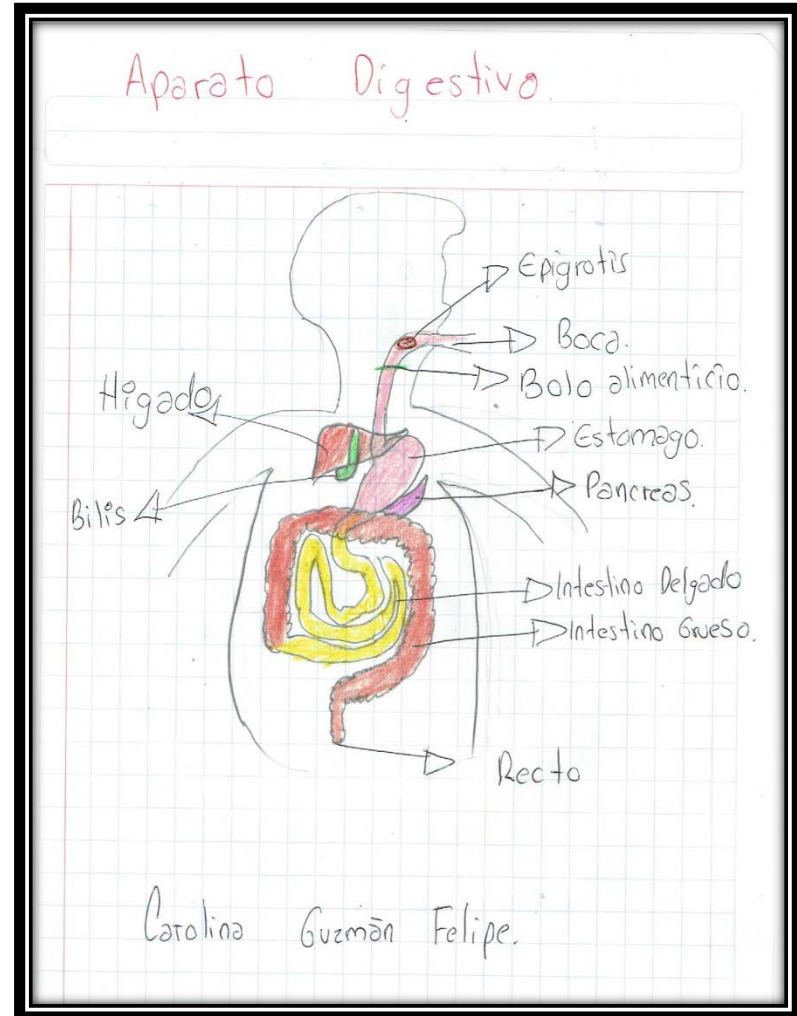 Aparato Digestivo.
Epigrotis
Boca.
Bolo alimenticio.
Higado
Estomago.
Pancreas.
Bilis
Intestino Delgado
Intestino Grueso.
Recto
Carolina Guzmán Felipe.